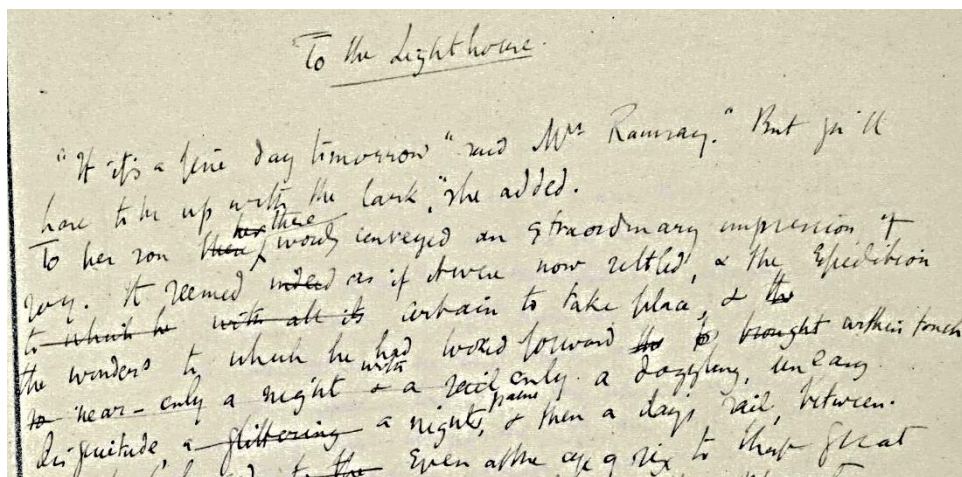 To the Lighthouse.
"If it's a fine day tomorrow" said Mrs Ramsay. "But you'll
have to be up with the lark," she added.
her these
To her son these words conveyed an extraordinary impression of
joy. It seemed indeed as if it were now settled, & the Expedition
to which he with all its certain to take place, & the
the wonders to which he had looked forward brought within touch
with
so near - only a night & a sail only. a dazzling, uneasy
disquietude, a glittering a night's & then a days sail, between.
Even at the age of six to that great